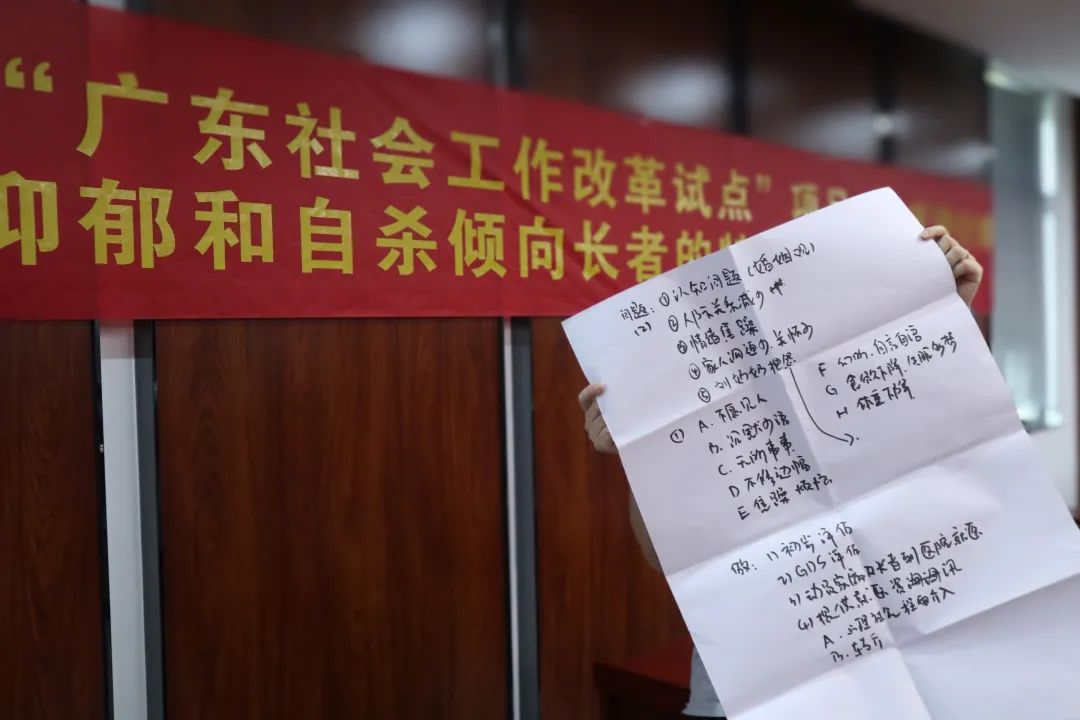 “广东社会工作改革试点”项目
抑郁和自杀倾向长者的特
问题: ①认知问题 (婚姻观)
(2) ②人际关系减少
③情绪焦躁
④家人沟通少,关怀少
⑤刘奶奶抱怨
① A. 不愿见人
B. 沉默少语
C. 无所事事
D 不修边幅
E 焦躁 烦忧
F 幻听、自言自语
G 食欲下降、失眠多梦
H 体重下降
做: 1) 初步评估
2) GDS评估
3) 动员家属 长者到医院就医
4) 提供就医资询通讯
A.
B. 转介